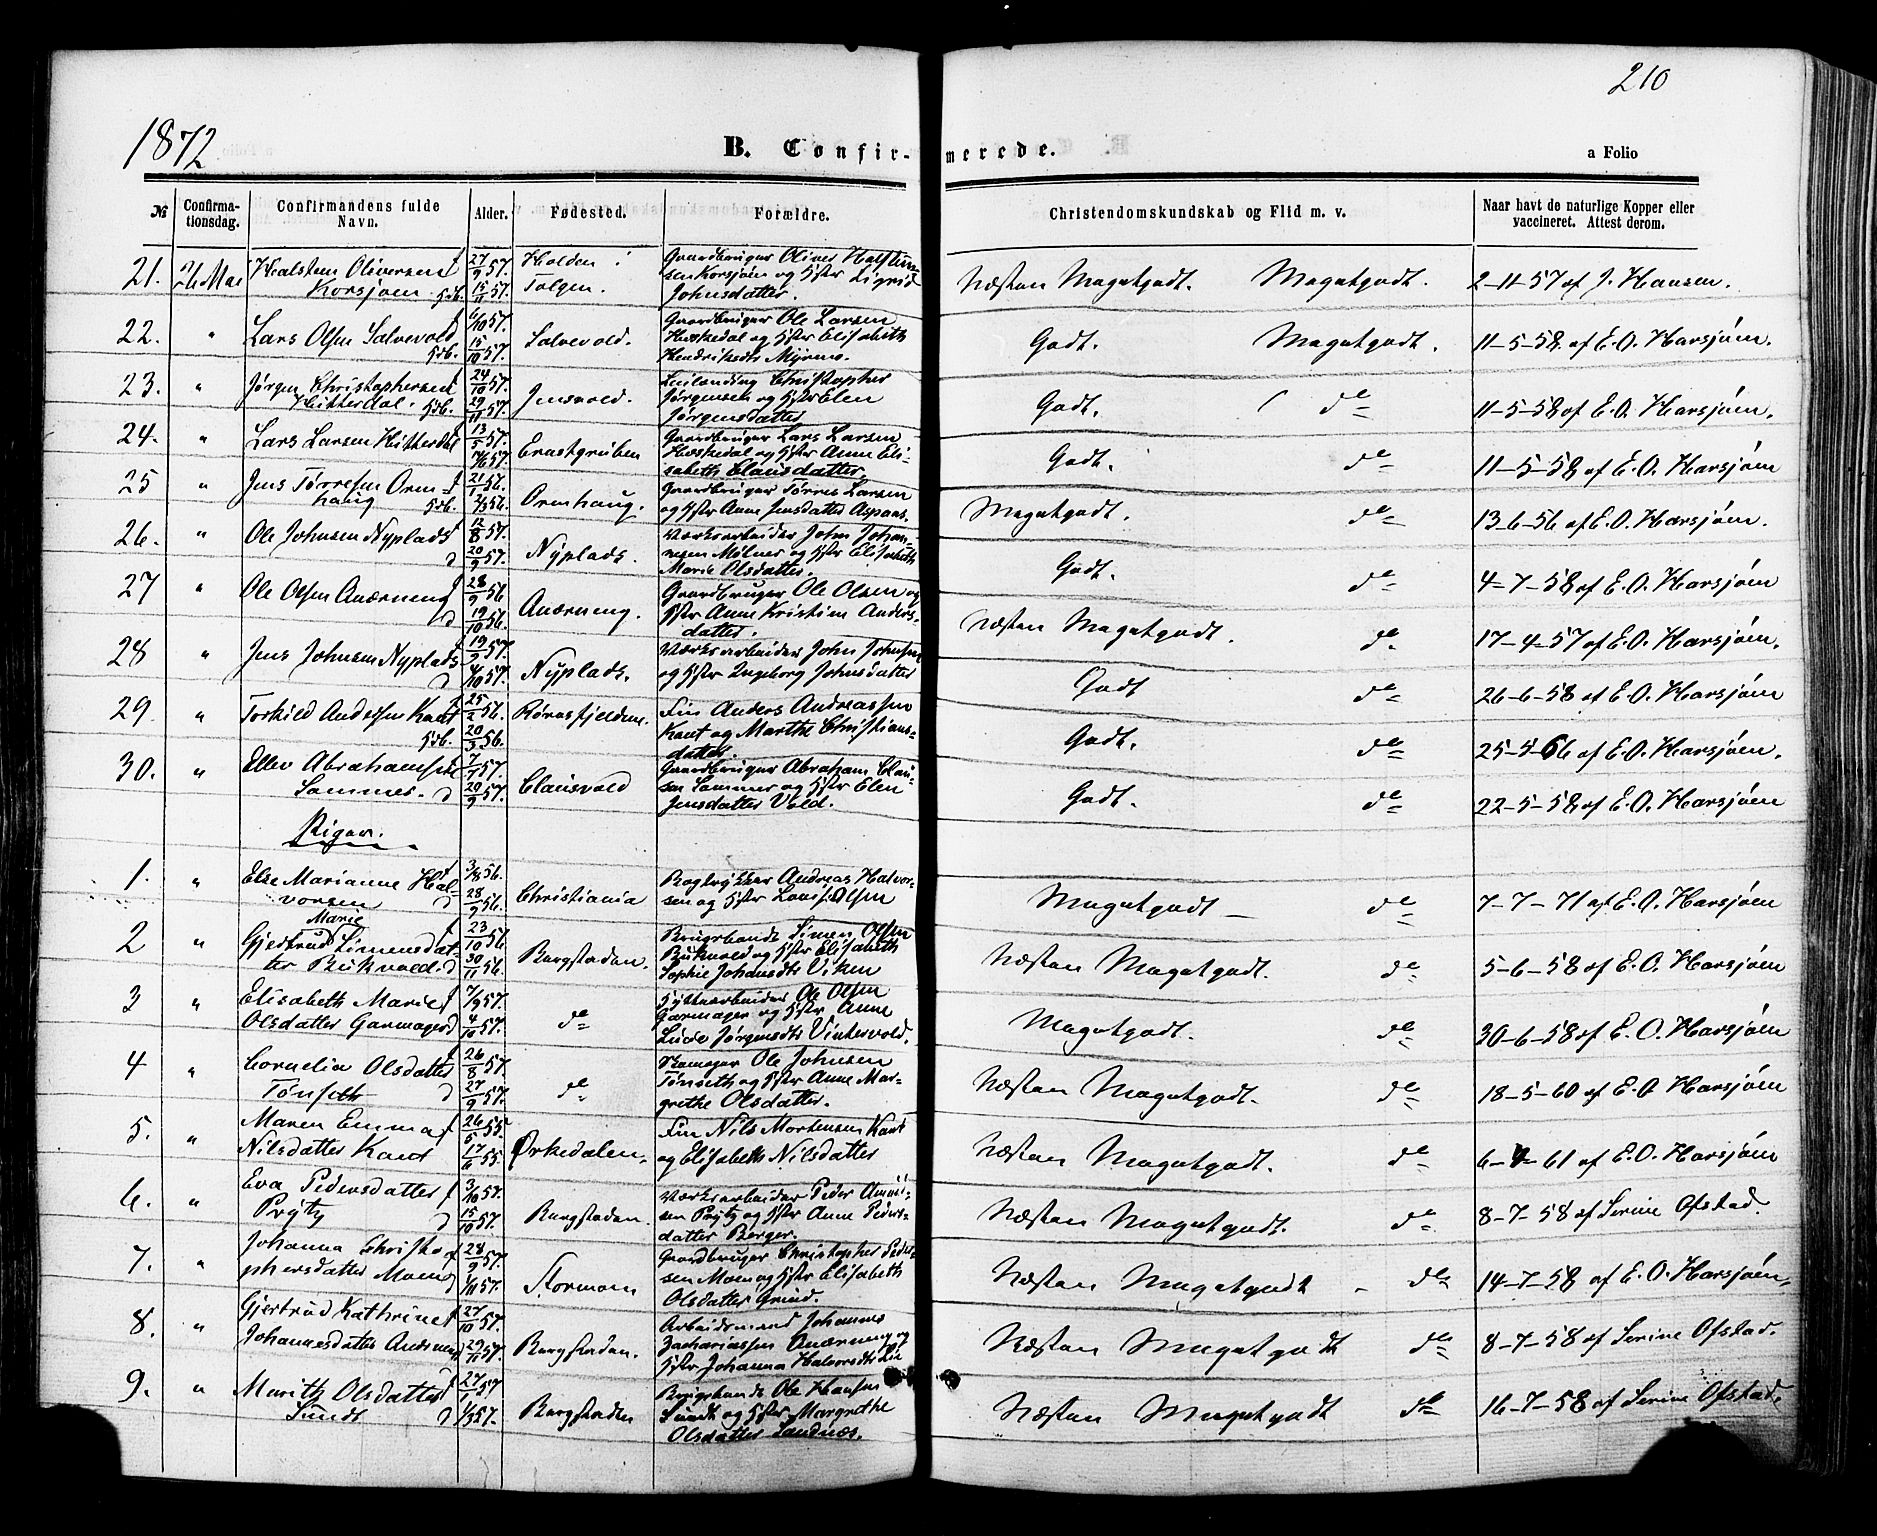 210
1872
B. Confirmerede.
a Folio
№ Confirmationsdag. Confirmandens fulde Navn. Alder. Fødested. Forældre. Christendomskundskab og Flid m. v. Naar havt de naturlige Kopper eller vaccineret. Attest derom.
21. 26 Mai Halsten Oliversen Korsjøen hdb. f 27/9 57. 15/11 57. Holden i Tolgen. Gaardbruger Oliver Halstensen Korsjøen og Hstr Sigrid Johnsdatter. Næsten Megetgodt. Megetgodt. 2-11-57 af J. Hansen.
22. " Lars Olsen Salvevold hdb. f 6/10 57. 15/10 57. Salvevold. Gaardbruger Ole Larsen og Hstr Elisabeth Hendriksdtr Myrmo. Godt. Megetgodt. 11-5-58 af E. O. Harsjøen.
23. " Jørgen Christophersen Hitterdal. hdb. 24/10 57. 29/11 57. Jensvold. Leilænding Christopher Jørgensen og Hstr Elen Jørgensdatter Godt. do 11-5-58 af E. O. Harsjøen.
24. " Lars Larsen Hitterdal 13/5 57. 14/6 57. Gaardbruger Lars Larsen og Hstr Anne Elisabeth Clausdatter Godt. do 11-5-58 af E. O. Harsjøen
25 " Jens Tørresen Ormhaug hdb. 21/1 56. 2/3 56. Ormhaug. Gaardbruger Tørres Larsen og Hstr Anne Jensdatter Aspaas. Megetgodt. do 13-6-56 af E. O. Harsjøen.
26. " Ole Johnsen Nyplads d 12/8 57. 20/9 57. Nyplads. Værksarbeider John Johannesen Mølner og Hstr Elisabeth Marie Olsdatter. Godt. do 4-7-58 af E. O. Harsjøen
27 " Ole Olsen Aværneng d 28/9 56 19/10 56. Aværneng. Gaardbruger Ole Olsen og Hstr Anne Kristine Andersdatter. Næsten Megetgodt. do 17-4-57 af E. O. Harsjøen.
28 " Jens Johnsen Nyplads d 19/9 57. 4/10 57. Nyplads. Værksarbeider John Johnsen og Hstr Ingeborg Johnsdatter Godt do 26-6-58 af E. O. Harsjøen
29. " Torkild Andersen Kant hdb. 25/2 56. 20/3 56. Rørosfjeldene. Fin Anders Andreassen Kant og Marthe Christiansdatter. Godt. do 25-5-66 af E. O. Harsjøen.
30. " Ellev Abrahamsen Sommer. d 7/7 57. 20/9 57. Clausvold Gaardbruger Abraham Clausen Sommer og Hstr Elen Jensdatter Vold. Godt. do 22-5-58 af E. O. Harsjøen
Piger.
1. " Else Marianne Halvorsen d 3/8 56. 28/9 56. Christiania Bogtrykker Andreas Halvorsen og Hstr Louise Olsen Megetgodt do 7-7-71 af E. O. Harsjøen
2 " Gjertrud Marie Simensdatter Bukvold. d 23/10 56 30/11 56. Bergstaden. Brugsbonde Simen Olsen Bukvold og Hstr Elisabeth Sophie Johansdtr Viken Næsten Megetgodt. do 5-6-58 af E. O. Harsjøen
3 " Elisabeth Marie Olsdatter Garmager d 7/9 57. 4/10 57. do Hyttearbeider Ole Olsen Garmager og Hstr Anne Lucie Jørgensdtr Vintervold. Megetgodt. do 30-6-58 af E. O. Harsjøen
4 " Cornelia Olsdatter Tønseth d 26/8 57. 27/9 57. do Ole Johnsen Tønseth og Hstr Anne Margrethe Olsdatter. Næsten Megetgodt. do 18-5-60 af E. O. Harsjøen
5. " Maren Emma Nilsdatter Kant 26/5 55 17/6 55. Ørkedalen. Fin Nils Mortensen Kant og Elisabeth Nilsdatter Næsten Megetgodt. do 6-9-61 af E. O. Harsjøen
6. " Eva Pedersdatter Prytz d 3/10 57. 15/10 57. Bergstaden. Værksarbeider Peder Prytz og Hstr Anne Pedersdatter Berger. Næsten Megetgodt. do 8-7-58 af Serine Ofstad.
7. " Johanna Christophersdatter Moen d 28/9 57. 1/11 57. Stormoen Gaardbruger Christopher Pedersen Moen og Hstr Elisabeth Olsdatter Grind. Næsten Megetgodt do 14-7-58 af E. O. Harsjøen.
8. " Gjertrud Kathrine Johannesdatter d 27/10 57. 29/11 57. Bergstaden. Arbeidsmand Johannes Zachariassen Aværneng og Hstr Johanna Halvorsdtr Næsten Megetgodt do 8-7-58 af Serine Ofstad.
9. " Marith Olsdatter Sundt d 27/1 57 1/3 57. Bergstaden Brugsbonde Ole Hansen Sundt og Hstr Margrethe Olsdatter Sandnæs. Næsten Megetgodt do 16-7-58 af Serine Ofstad.